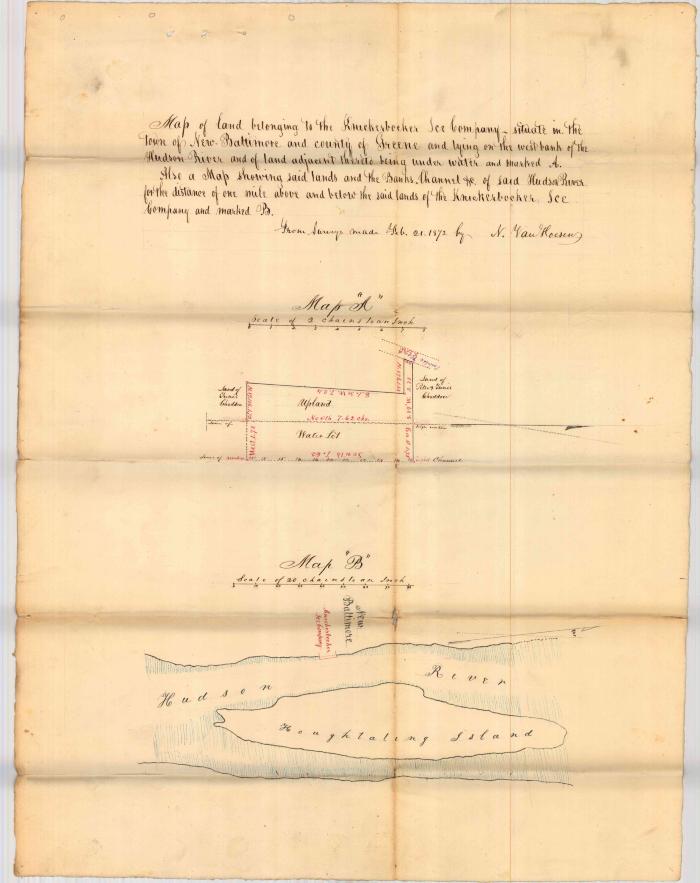 Map of land belonging to the Knickerbocker Ice Company – situate in the
town of New-Baltimore and county of Greene and lying on the west bank of the
Hudson River and of land adjacent thereto being under water and marked A.
Also a Map showing said lands and the Banks, Channel &c. of said Hudson River
for the distance of one mile above and below the said lands of the Knickerbocker Ice
Company and marked B.
From Surveys made Feb. 21. 1872 by N. Van Hoesen
Map "A"
Scale of 2 chains to an Inch
Land of
Land of
Upland
North 7.62 chs.
Water Lot
South 7.62
Channel
Map "B"
Scale of 20 chains to an Inch
New
Baltimore
Knickerbocker
Ice Company
Hudson River
Houghtaling Island